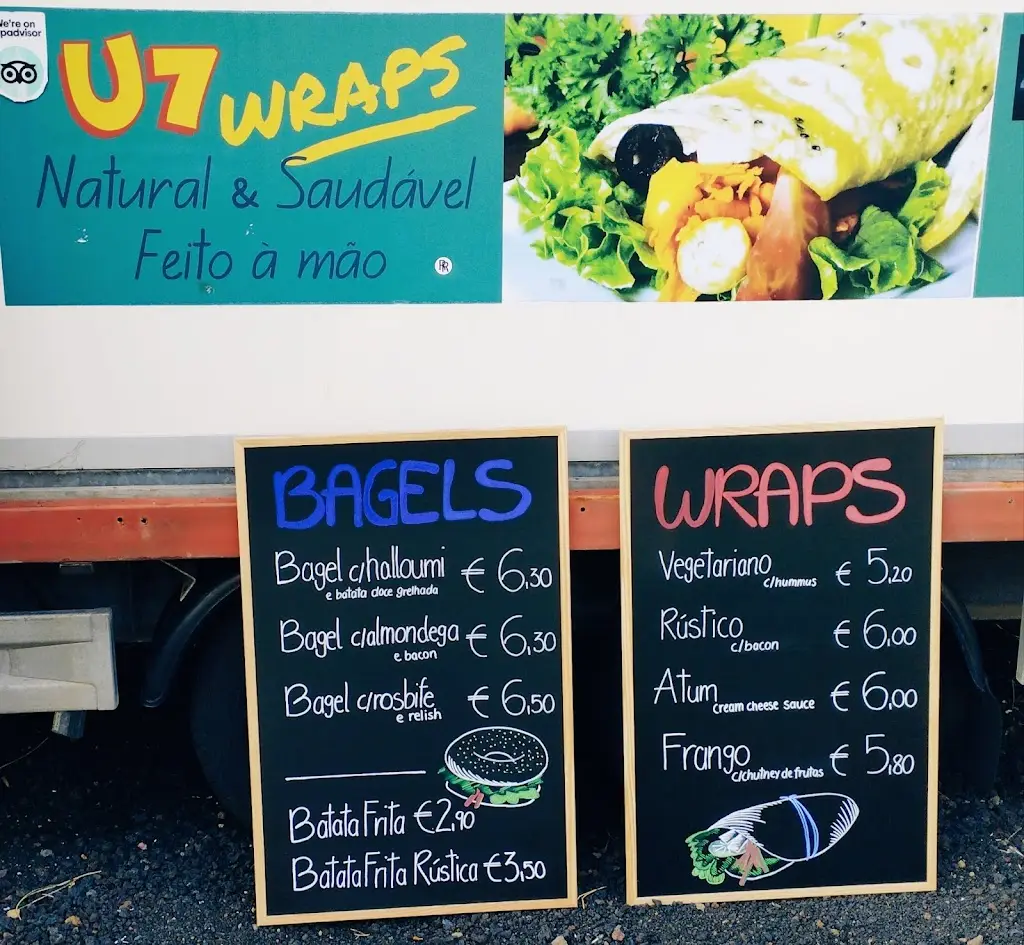 We're on
tripadvisor
U7 WRAPS
Natural & Saudável
Feito à mão
R
BAGELS
Bagel c/halloumi € 6,30
e batata doce grelhada
Bagel c/almondega € 6,30
e bacon
Bagel c/rosbife € 6,50
e relish
Batata Frita €2,90
Batata Frita Rústica €3,50
WRAPS
Vegetariano € 5,20
c/hummus
Rústico € 6,00
c/bacon
Atum € 6,00
cream cheese sauce
Frango € 5,80
c/chutney de frutas